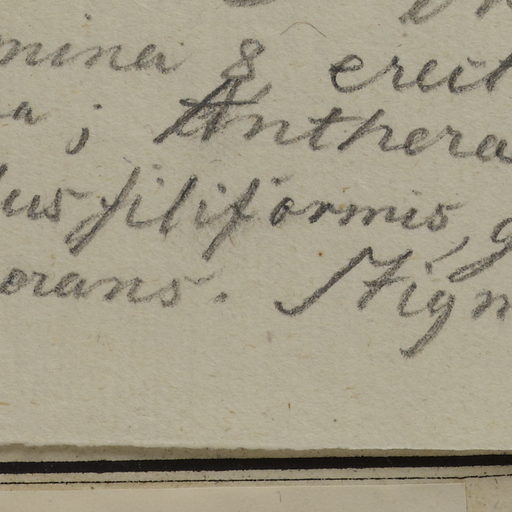 mina 8 erect
a; Anthera
lus filiformis, g
orans. Stigm